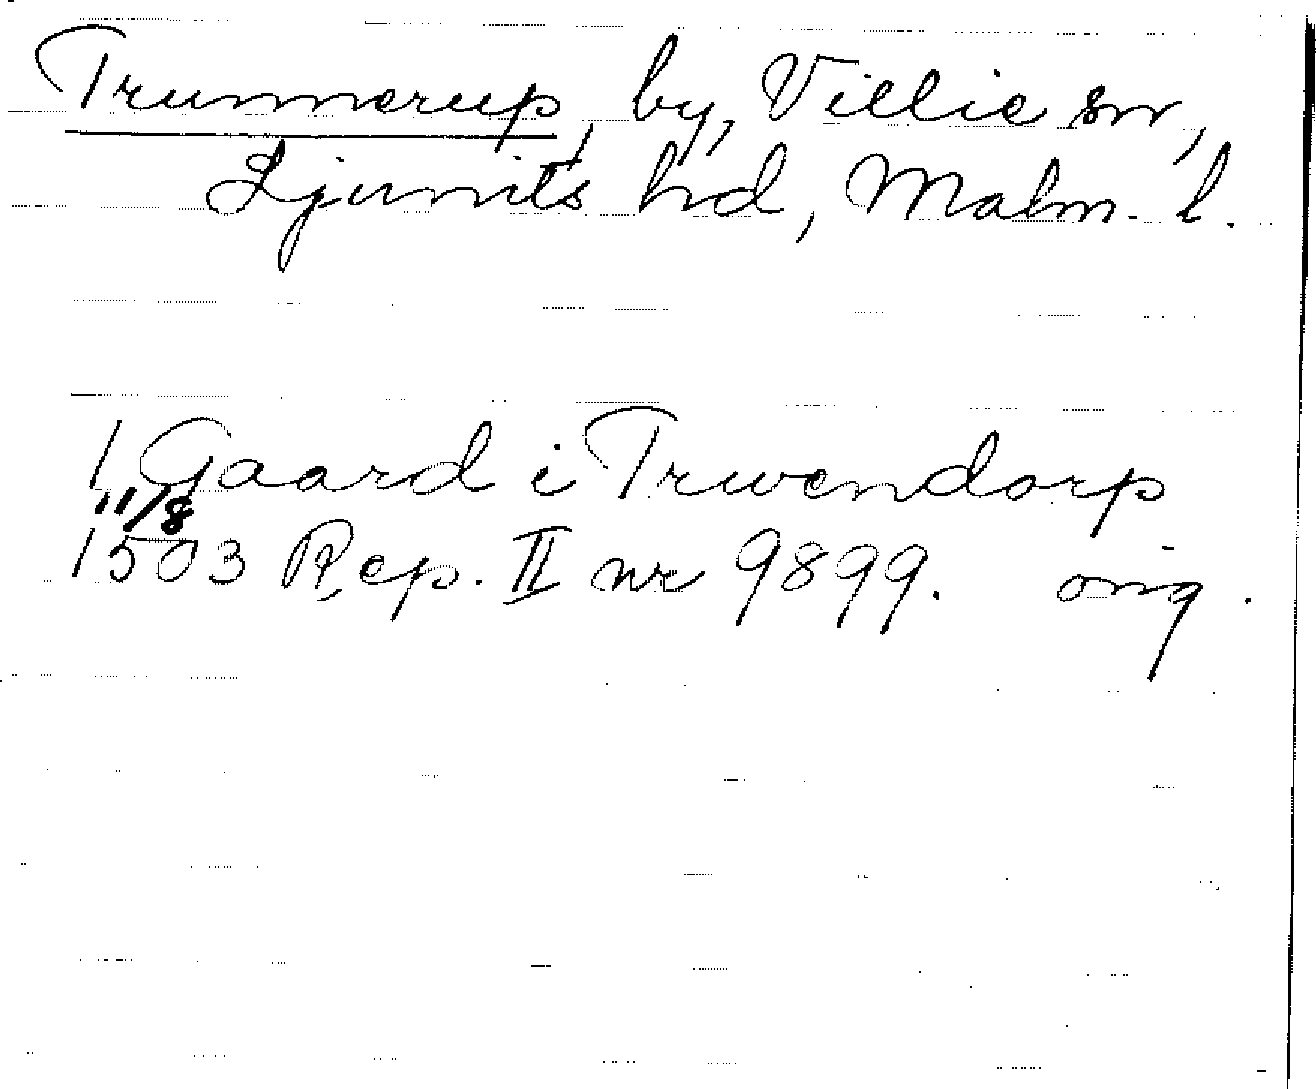 Trunnerup, by, Villie sn,
Ljunits hd, Malm. l.
1 Gaard i Trwendorp
11/8
1503 Rep. II nr 9899. orig.